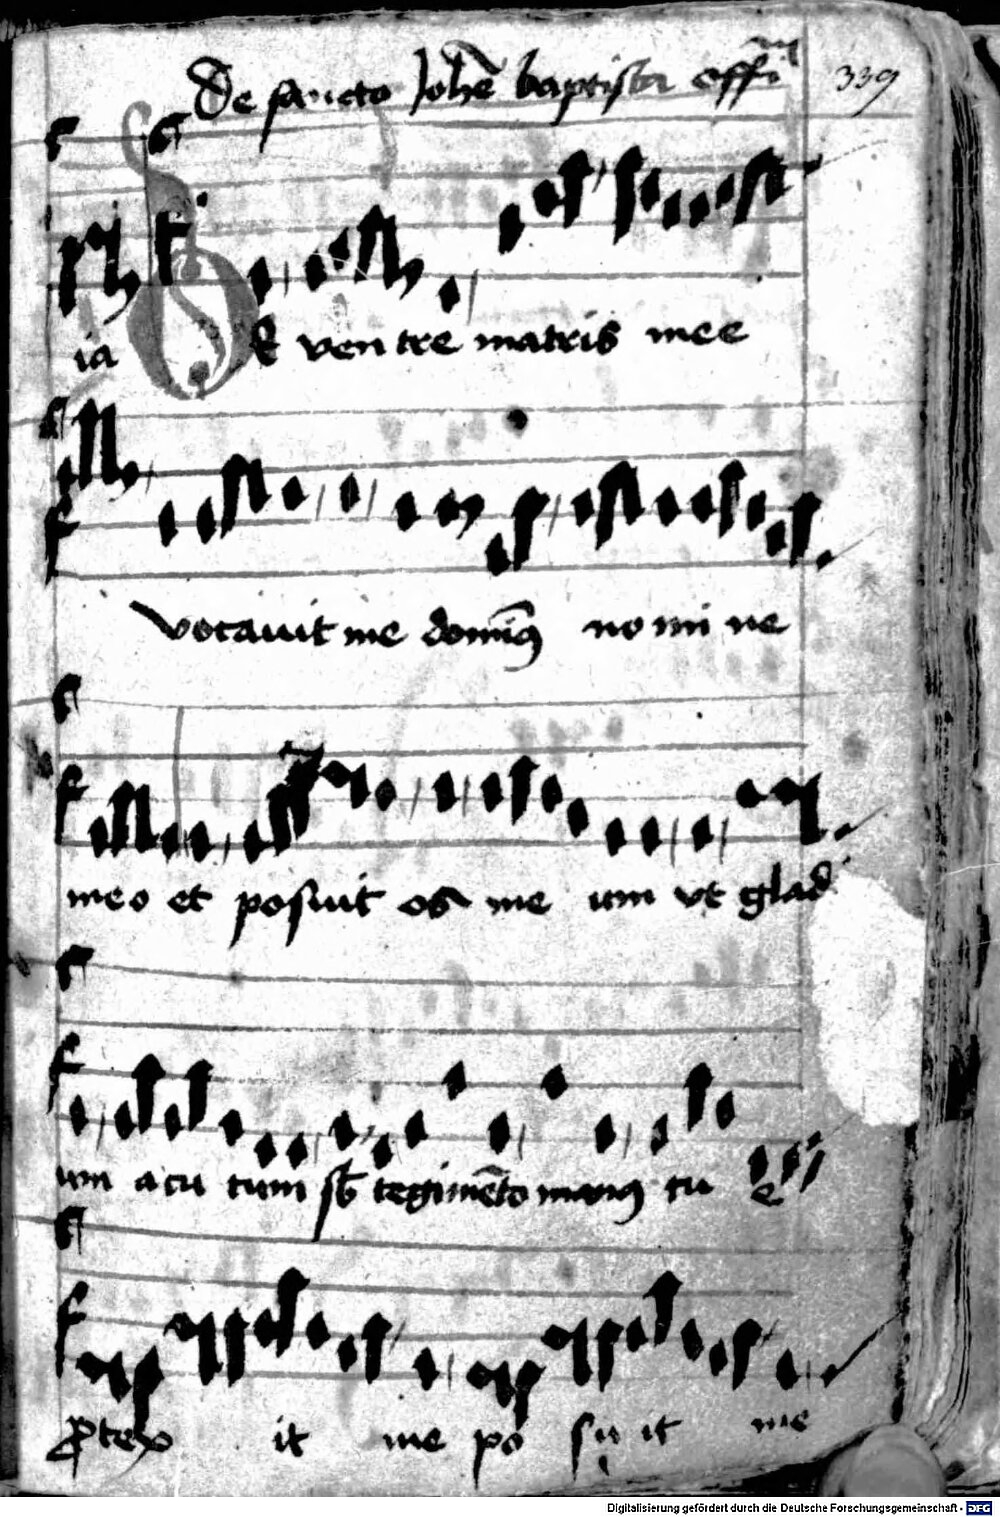 De sancto Johē baptista offiᵐ 339
ia De ven tre matris mee
vocauit me dominꝰ no mi ne
meo et posuit os me um vt glad
um acu tum sb tegimēto manꝰ tu e
ꝓtex it me po su it me
Digitalisierung gefördert durch die Deutsche Forschungsgemeinschaft - DFG